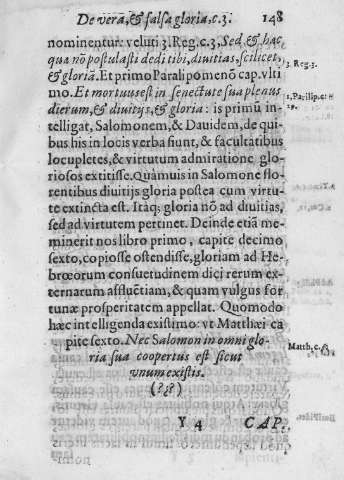 De vera, & falsa gloria, c. 3. 148
nominentur: veluti 3. Reg. c. 3, Sed, & hæc
qua nō postulasti dedi tibi, diuitias, scilicet,
& gloriā. Et primo Paralipomenō cap. vlti
mo. Et mortuus est in senectute sua plenus
dierum, & diuitijs, & gloria: is primū in-
telligat, Salomonem, & Dauidem, de qui-
bus his in locis verba fiunt, & facultatibus
locupletes, & virtutum admiratione glo-
riosos extitisse. Quamuis in Salomone flo-
rentibus diuitijs gloria postea cum virtu-
te extincta est. Itaq; gloria nō ad diuitias,
sed ad virtutem pertinet. Deinde etiā me-
minerit nos libro primo, capite decimo
sexto, copiosse ostendisse, gloriam ad He-
brœorum consuetudinem dici rerum ex-
ternarum affluētiam, & quam vulgus for
tunæ prosperitatem appellat. Quomodo
hæc intelligenda existimo: vt Matthæi ca
pite sexto. Nec Salomon in omni glo-
ria sua coopertus est sicut
vnum ex istis.
(?&?)
Y 4 CAP.
3. Reg. 3.
1. Parilip. c:
Matth. c. 6.